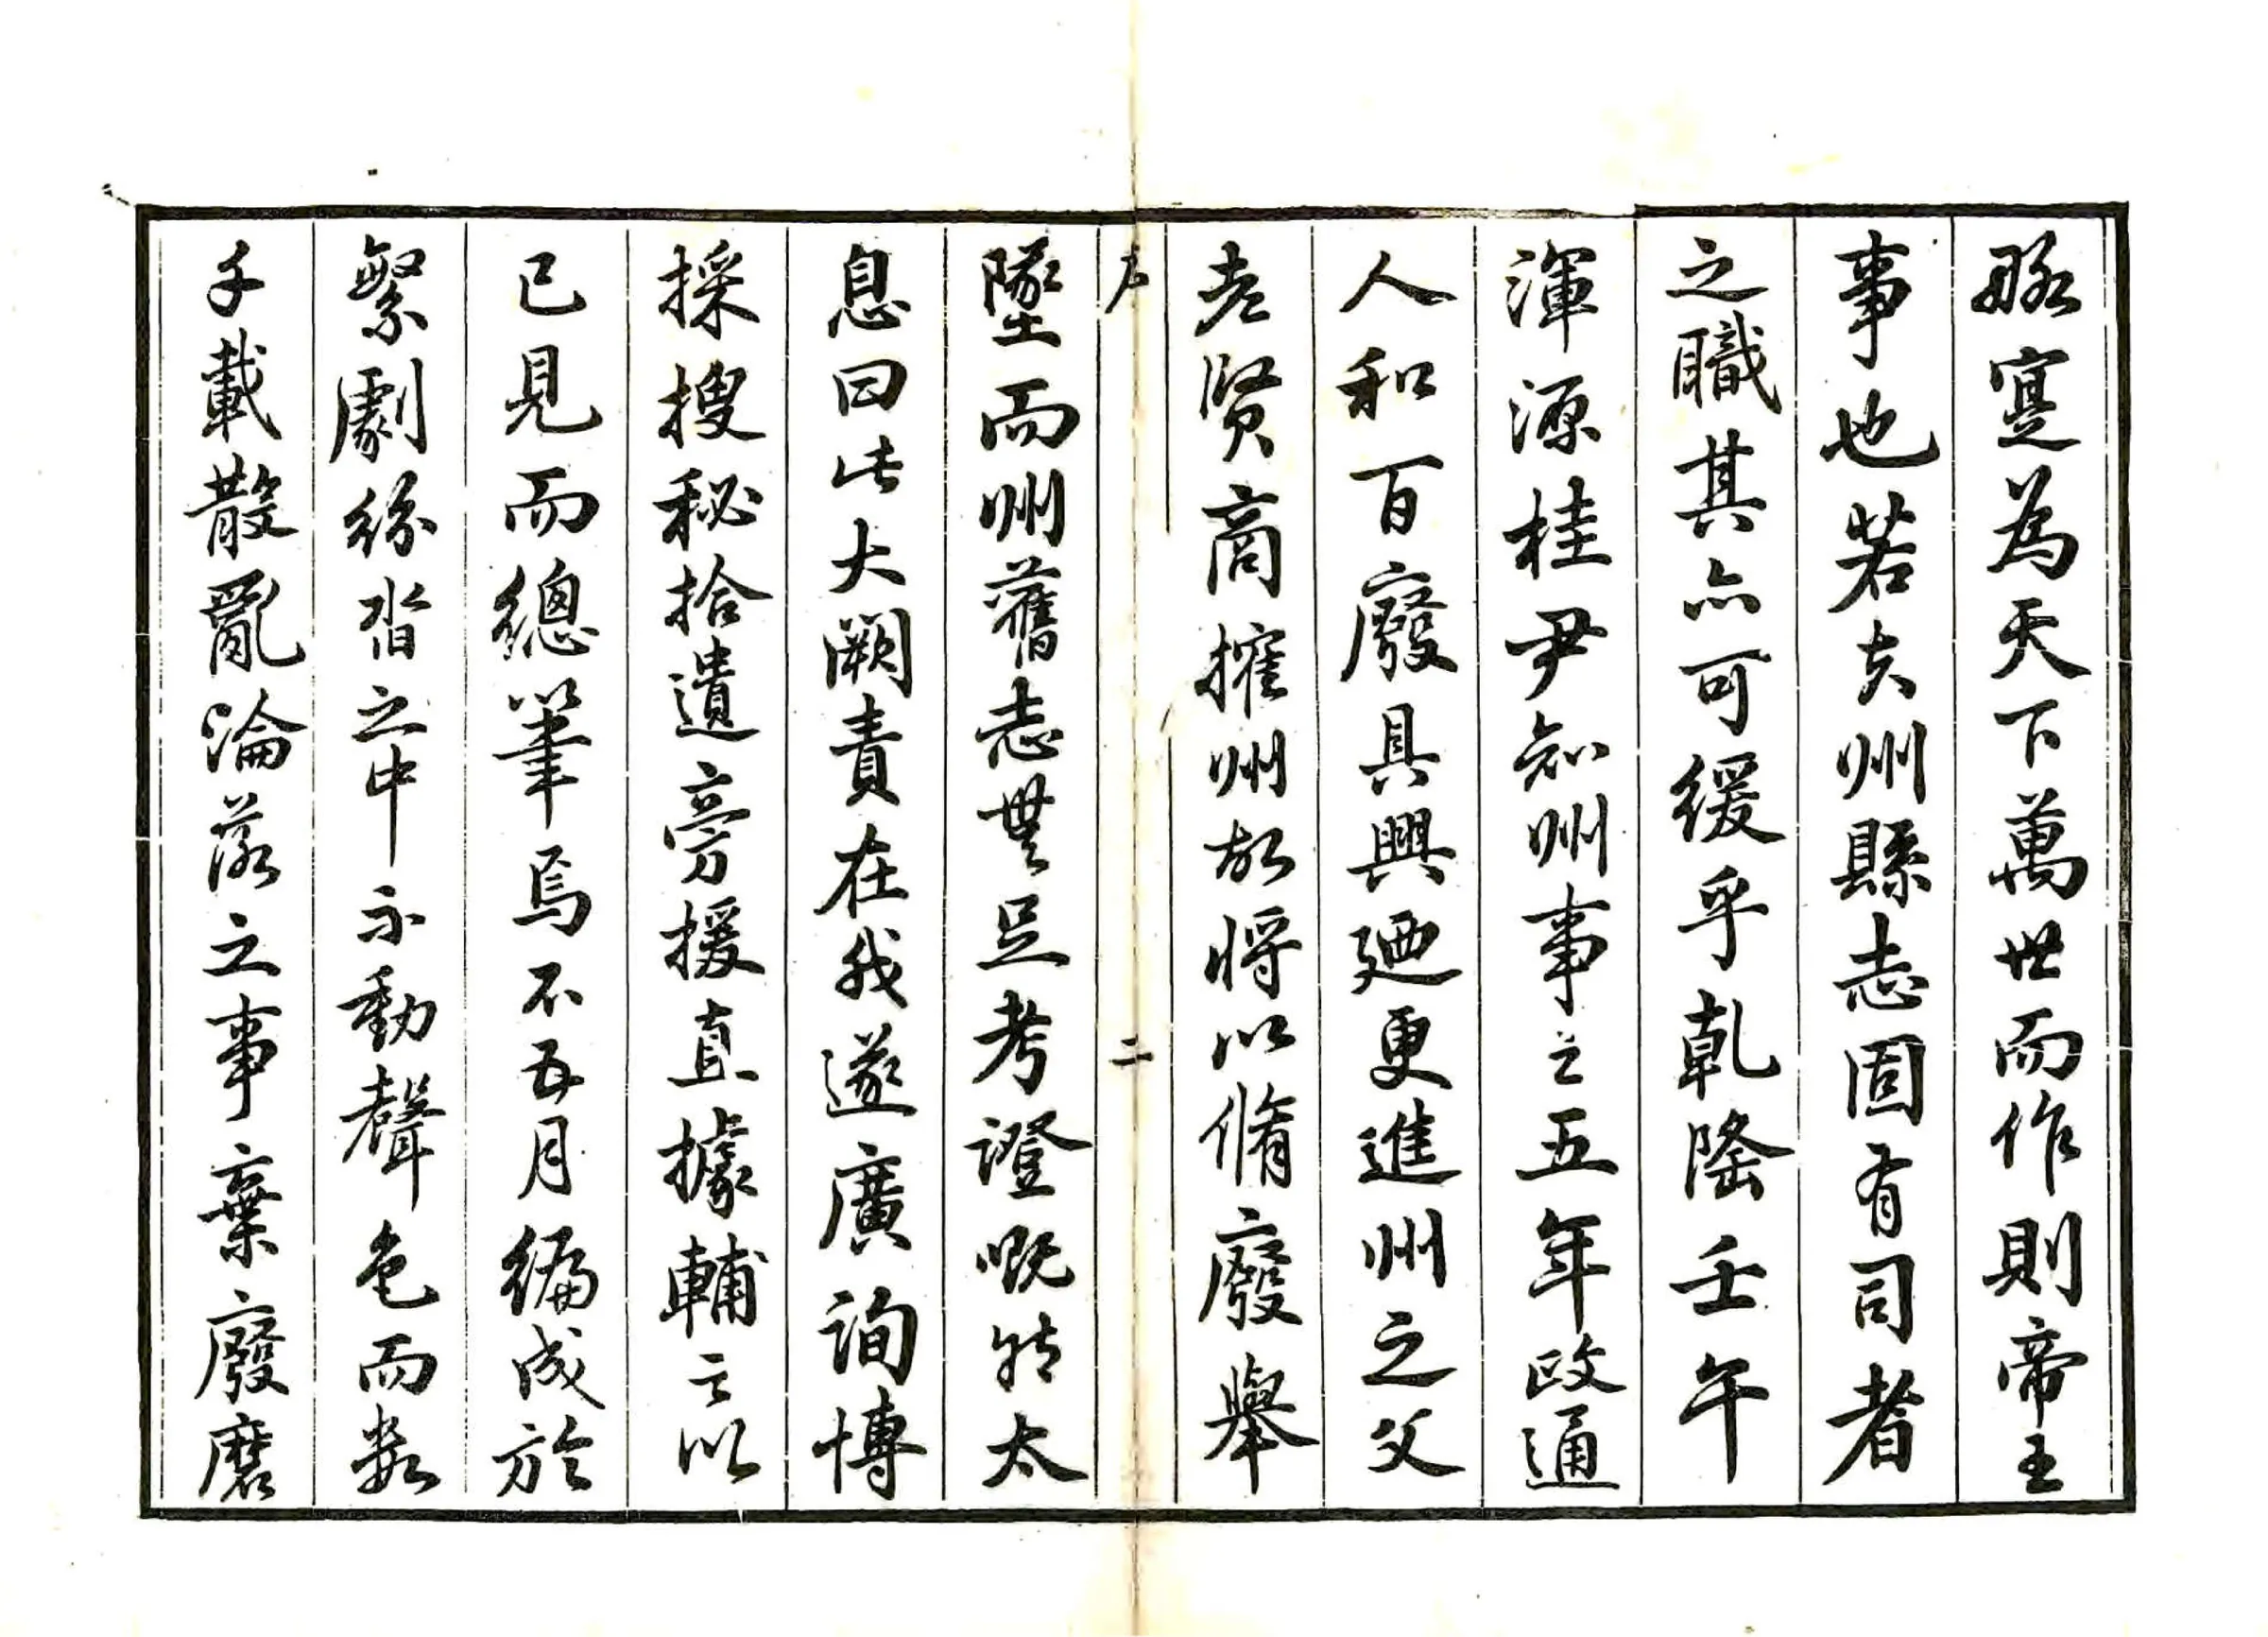 脉寔為天下萬世而作則帝王
事也若夫州縣志固有司者
之職其亦可緩乎乾隆壬午
渾源桂尹知州事之五年政通
人和百廢具興廼更進州之父
老賢商搉州故将以脩廢舉
序 二
墜而州舊志無足考證嘅然太
息曰此大闕責在我遂廣詢博
採搜秘拾遺旁援直據輔之以
已見而總筆焉不五月編成於
繁劇紛沓之中不動聲色而数
千載散亂淪落之事棄廢磨